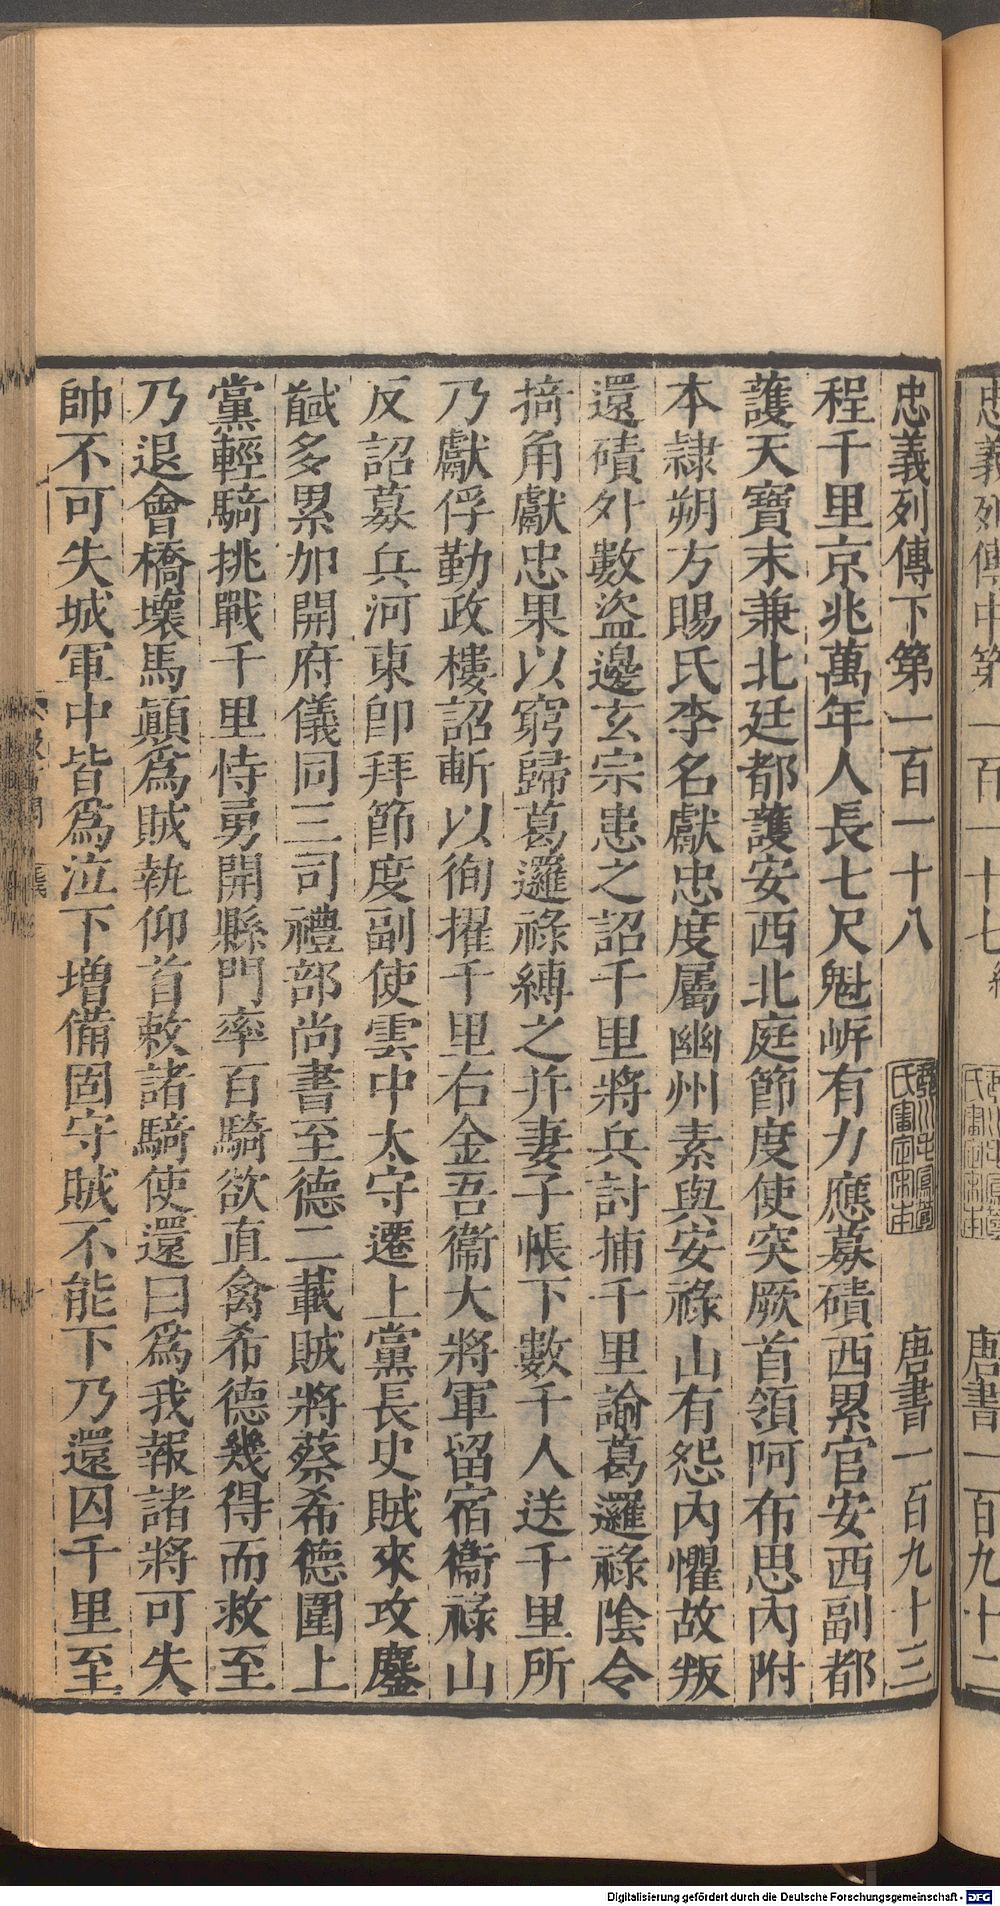 忠義列傳下第一百一十八 唐書一百九十三
程千里京兆萬年人長七尺魁岸有力應募磧西累官安西副都
護天寶末兼北廷都護安西北庭節度使突厥首領阿布思內附
本隷朔方賜氏李名獻忠度屬幽州素與安祿山有怨內懼故叛
還磧外數盜邊玄宗患之詔千里將兵討捕千里諭葛邏祿陰令
掎角獻忠果以窮歸葛邏祿縛之并妻子帳下數千人送千里所
乃獻俘勤政樓詔斬以徇擢千里右金吾衞大將軍留宿衞祿山
反詔募兵河東卽拜節度副使雲中太守遷上黨長史賊來攻鏖
馘多累加開府儀同三司禮部尚書至德二載賊將蔡希德圍上
黨輕騎挑戰千里恃勇開縣門率百騎欲直禽希德幾得而救至
乃退會橋壞馬顚爲賊執仰首敕諸騎使還曰爲我報諸將可失
帥不可失城軍中皆爲泣下增備固守賊不能下乃還囚千里至
忠義列傳中第一百一十七 唐書一百九十二
Digitalisierung gefördert durch die Deutsche Forschungsgemeinschaft - DFG